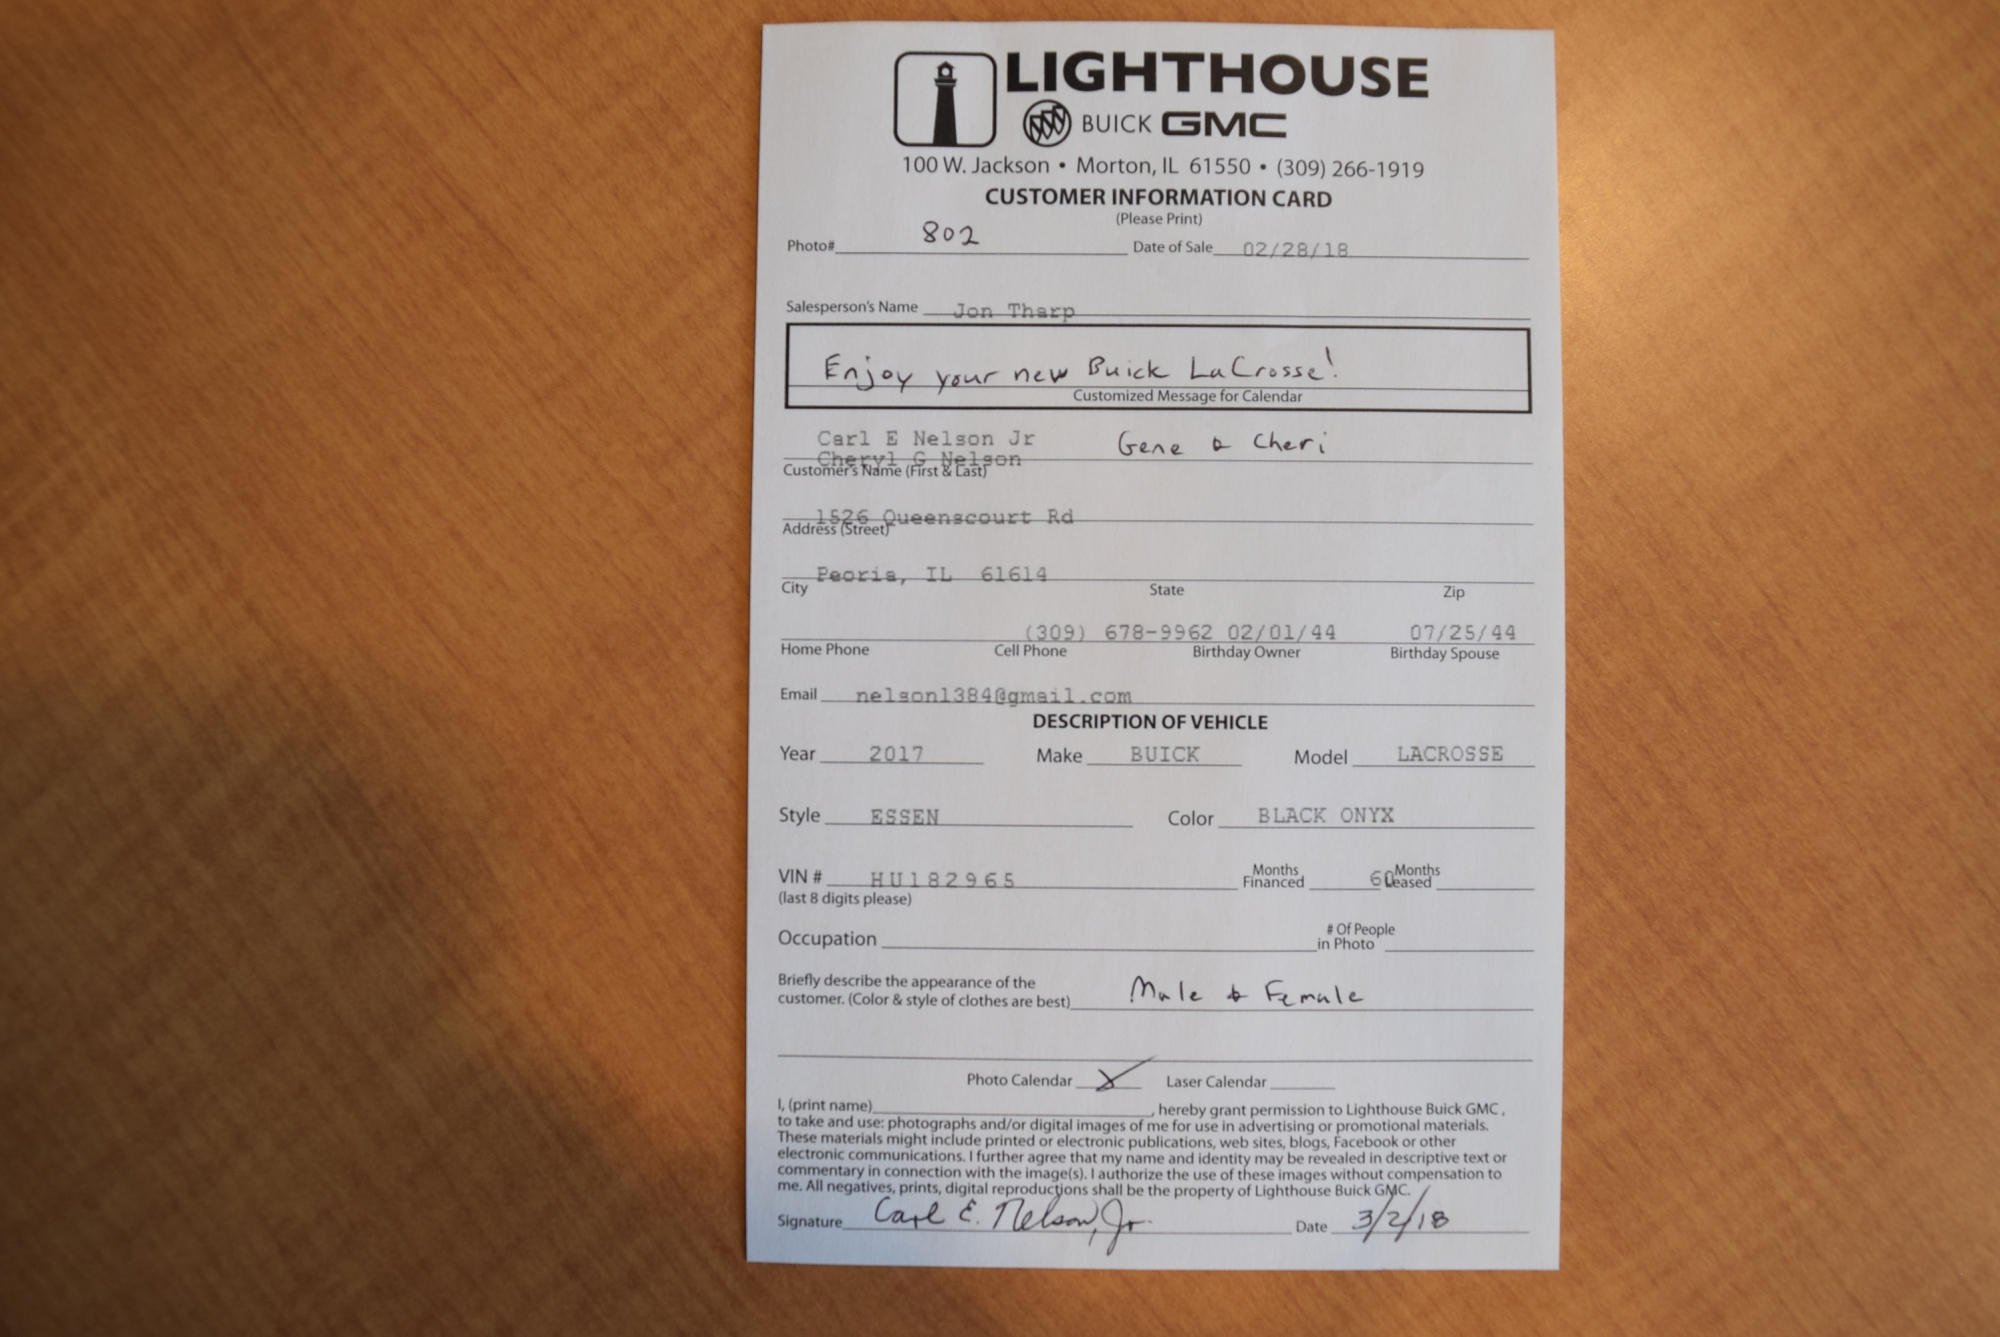 LIGHTHOUSE
BUICK GMC
100 W. Jackson • Morton, IL 61550 • (309) 266-1919
CUSTOMER INFORMATION CARD
(Please Print)
Photo# 802 Date of Sale 02/28/18
Salesperson's Name Jon Tharp
Enjoy your new Buick LaCrosse!
Customized Message for Calendar
Carl E Nelson Jr Gene & Cheri
Cheryl G Nelson
Customer's Name (First & Last)
1526 Queenscourt Rd
Address (Street)
Peoria, IL 61614
City State Zip
(309) 678-9962 02/01/44 07/25/44
Home Phone Cell Phone Birthday Owner Birthday Spouse
Email nelson1384@gmail.com
DESCRIPTION OF VEHICLE
Year 2017 Make BUICK Model LACROSSE
Style ESSEN Color BLACK ONYX
VIN # HU182965 Months Financed 60 Months Leased
(last 8 digits please)
Occupation # Of People in Photo
Briefly describe the appearance of the
customer. (Color & style of clothes are best) Male & Female
Photo Calendar X Laser Calendar
I, (print name) , hereby grant permission to Lighthouse Buick GMC,
to take and use: photographs and/or digital images of me for use in advertising or promotional materials.
These materials might include printed or electronic publications, web sites, blogs, Facebook or other
electronic communications. I further agree that my name and identity may be revealed in descriptive text or
commentary in connection with the image(s). I authorize the use of these images without compensation to
me. All negatives, prints, digital reproductions shall be the property of Lighthouse Buick GMC.
Signature Carl E. Nelson, Jr. Date 3/2/18